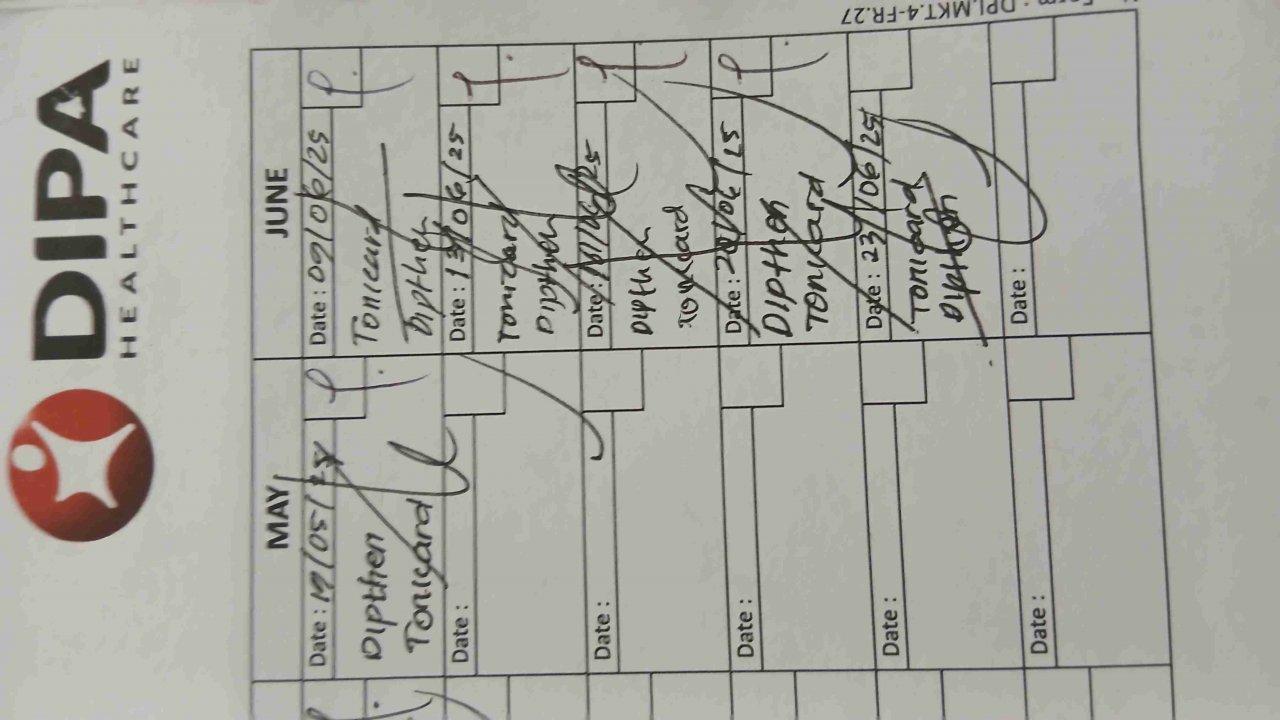 DIPA
HEALTHCARE
Form : DPI.MKT.4-FR.27
MAY
Date : 19/05/25
Dipthen
Tonicard
Date :
Date :
Date :
Date :
Date :
JUNE
Date : 09/06/25
Tonicard
Dipthen
Date : 13/06/25
Tonicard
Dipthen
Date :
Dipthen
Tonicard
Date : 20/06/25
Dipthen
Tonicard
Date : 23/06/25
Tonicard
Dipthen
Date :